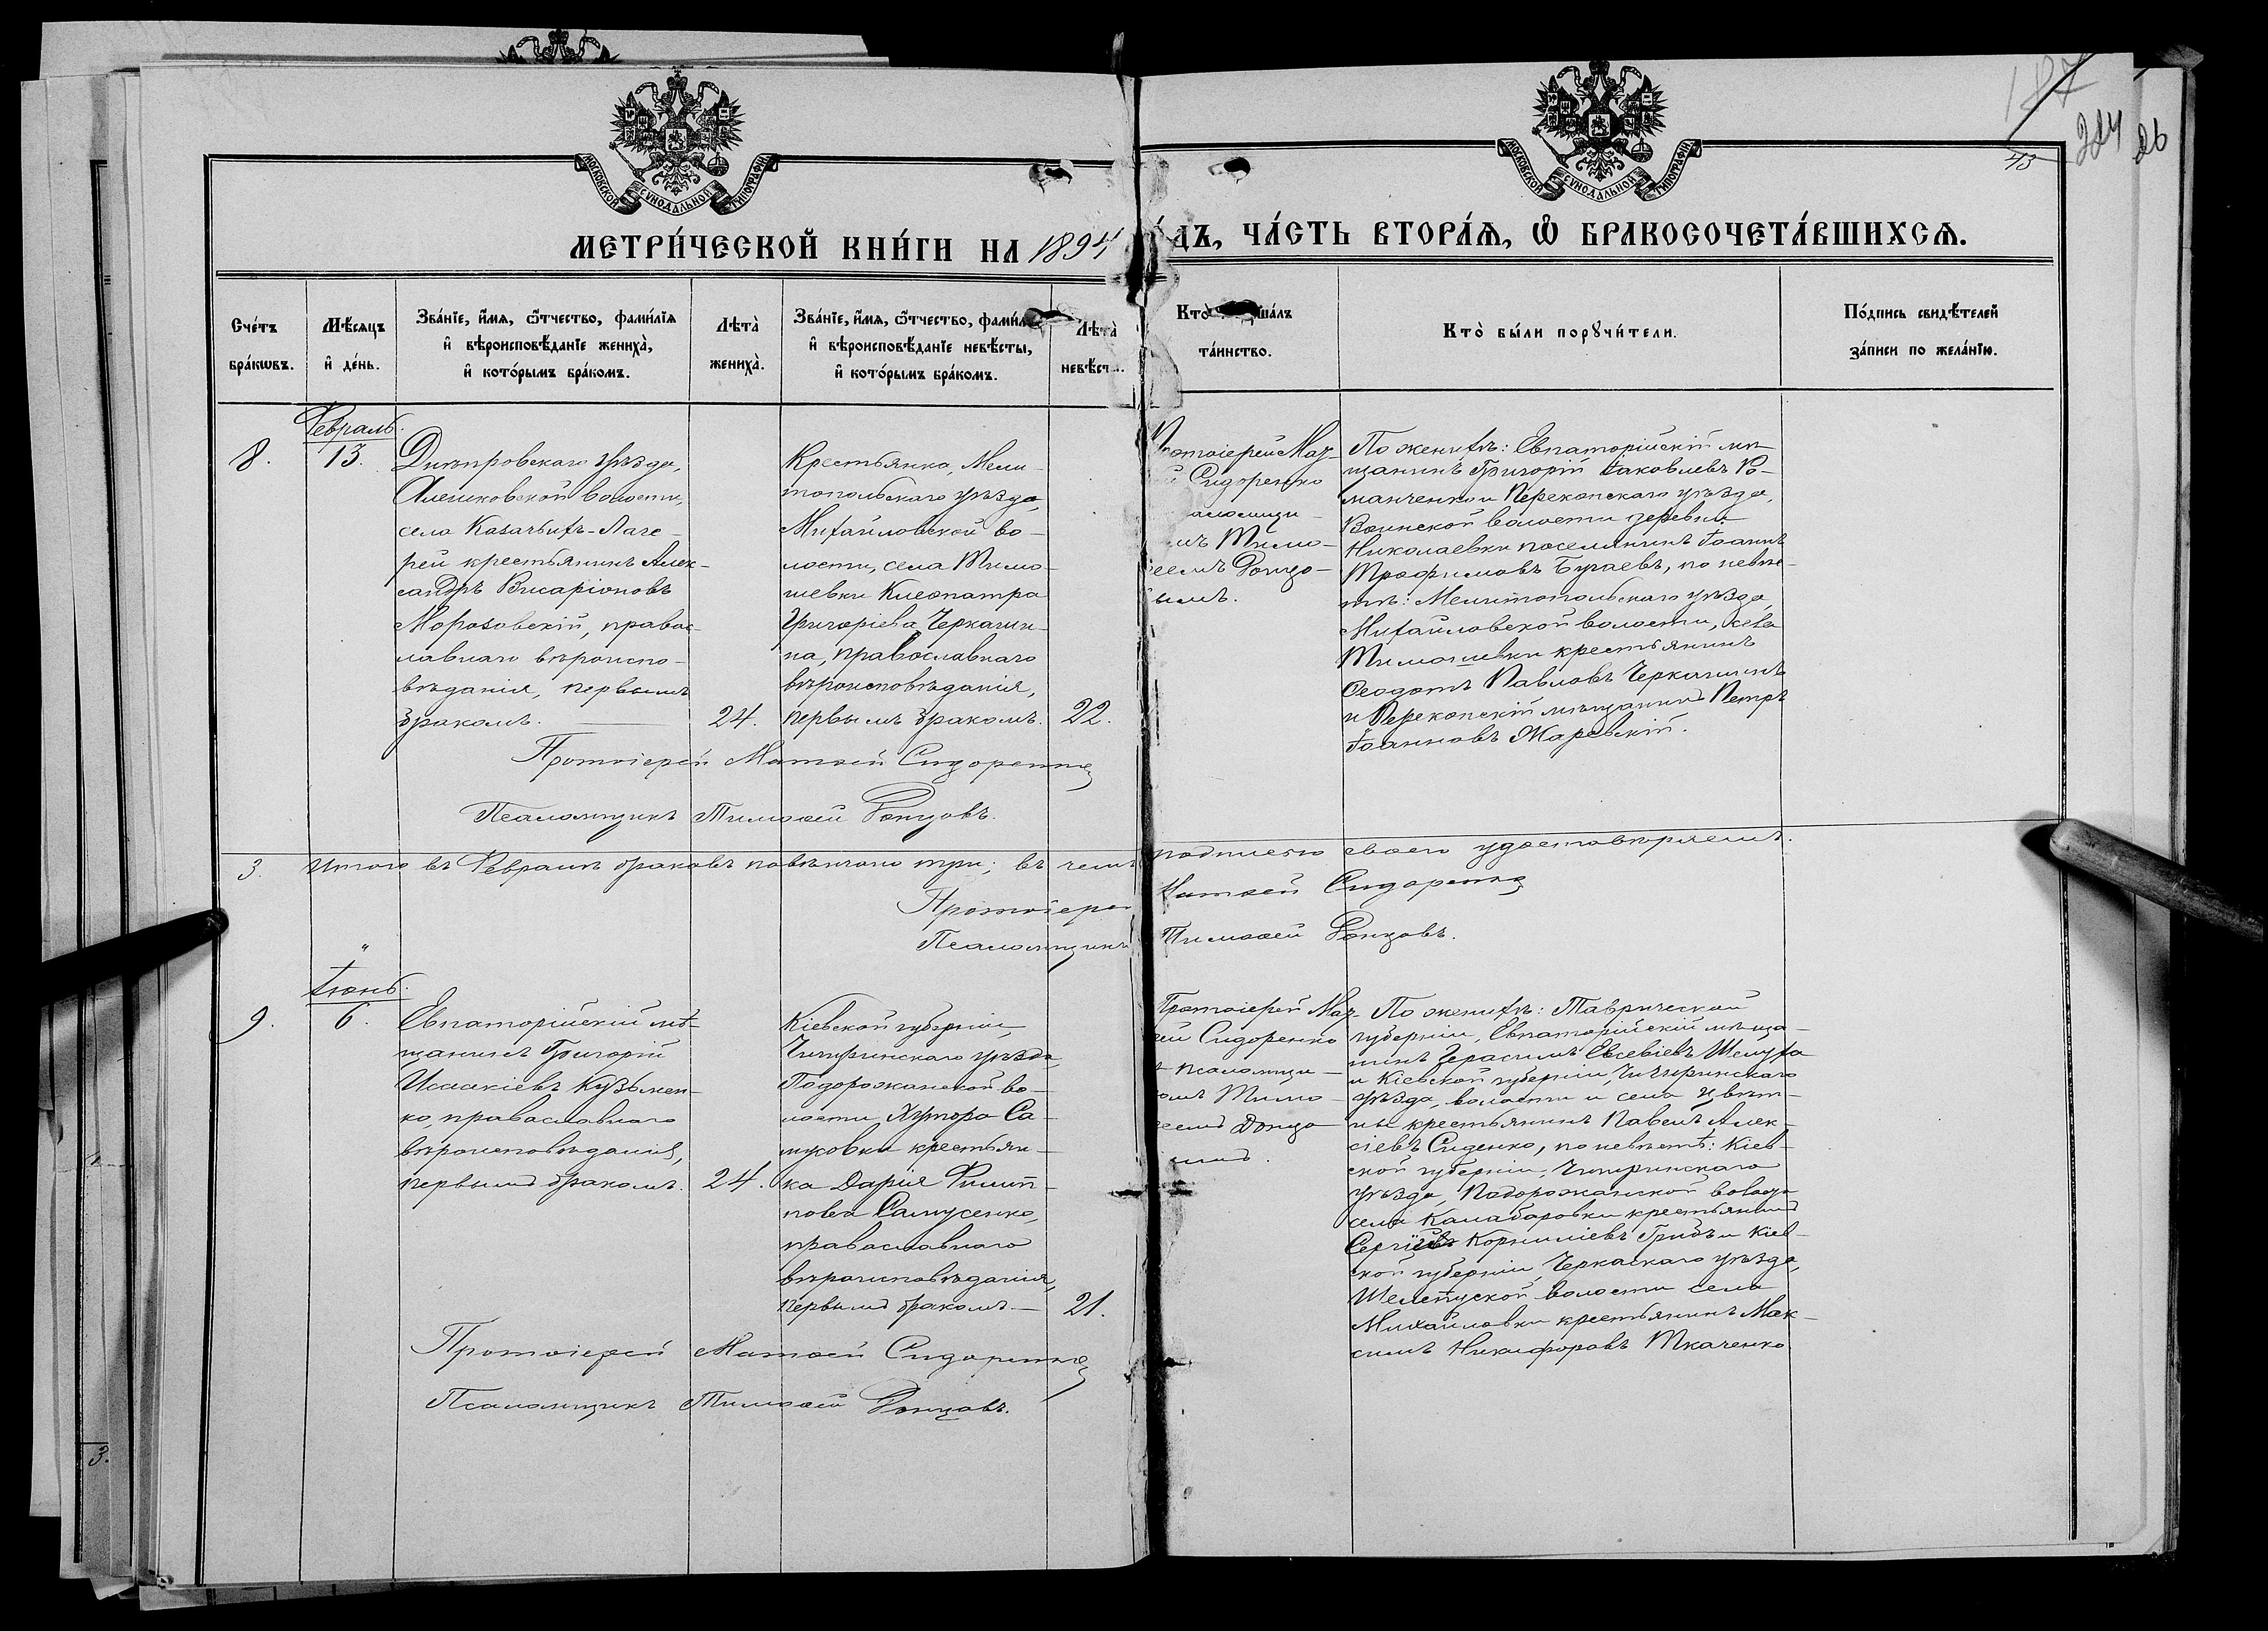 187
43
224
26
МОСКОВСКОЙ СѴНОДАЛЬНОЙ ТИПОГРАФІИ
МОСКОВСКОЙ СѴНОДАЛЬНОЙ ТИПОГРАФІИ
МЕТРИ́ЧЕСКОЙ КНИ́ГИ НА 1894
ДЪ, ЧА́СТЬ ВТОРА́Ѧ, Ѡ҆ БРАКОСОЧЕТА́ВШИХСѦ.
Сче́тъ
бра́кѡвъ.
Мѣ́сяцъ
и҆ де́нь.
Зва́нїе, и҆́мя, ѻ҆́тчество, фами́лїя
и҆ вѣроисповѣ́данїе жениха̀,
и҆ кото́рымъ бра́комъ.
Лѣта̀
жениха̀.
Зва́нїе, и҆́мя, ѻ҆́тчество, фами́л
и҆ вѣроисповѣ́данїе невѣ́сты,
и҆ кото́рымъ бра́комъ.
Лѣта̀
невѣ́ст
Кто̀ шалъ
та́инство.
Кто̀ бы́ли порꙋчи́тели.
По́дпись свидѣ́телей
за́писи по жела́нію.
Февраль.
8.
13.
Днѣпровскаго уѣзда,
Алешковской волости,
села Казачьихъ-Лаге-
рей крестьянинъ Алек-
сандръ Висаріоновъ
Морозовскій, правос-
лавнаго вѣроиспо-
вѣданія, первымъ
бракомъ.
24.
Крестьянка, Мели-
топольскаго уѣзда,
Михайловской во-
лости, села Тимо-
шевки Клеопатра
Григоріева Черкаши-
на, православнаго
вѣроисповѣданія,
первымъ бракомъ.
22.
Протоіерей Маѳ-
й Сидоренко
аломщи-
мъ Тимо-
ѳеемъ Донцо-
вымъ.
По женихѣ: Евпаторійскій мѣ-
щанинъ Григорій Іаковлевъ Ро-
манченко и Перекопскаго уѣзда,
Воинской волости деревни
Николаевки поселянинъ Іоаннъ
Трофимовъ Бугаевъ, по невѣс-
тѣ: Мелитопольскаго уѣзда,
Михайловской волости, села
Тимошевки крестьянинъ
Ѳеодотъ Павловъ Черкашинъ
и Перекопскій мѣщанинъ Петръ
Іоанновъ Маревскій.
Протоіерей Матѳей Сидоренко
Псаломщикъ Тимоѳей Донцовъ.
3.
Итого въ Февралѣ браковъ повѣнчано три; въ чемъ подписью своею удостовѣряемъ.
Протоіерей Матѳей Сидоренко
Псаломщикъ Тимоѳей Донцовъ.
Іюнь.
9.
6.
Евпаторійскій мѣ-
щанинъ Григорій
Исаакіевъ Кузьмен-
ко, православнаго
вѣроисповѣданія,
первымъ бракомъ.
24.
Кіевской губерніи,
Чигиринскаго уѣзда,
Подорожанской во-
лости, Хутора Са-
мусовки крестьян-
ка Дарія Филип-
пова Самусенко,
православнаго
вѣроисповѣданія,
первымъ бракомъ.
21.
Протоіерей Маѳ-
ѳей Сидоренко
псаломщи-
комъ Тимо-
ѳеемъ Донцо-
вымъ.
По женихѣ: Таврической
губерніи, Евпаторійскій мѣща-
нинъ Герасимъ Евсевіевъ Шелуха
и Кіевской губерніи, Чигиринскаго
уѣзда, волости и села Цвѣт-
ны крестьянинъ Павелъ Алек-
сіевъ Сиденко, по невѣстѣ: Кіев-
ской губерніи, Чигиринскаго
уѣзда, Подорожанской волости
села Калаборовки крестьянинъ
Сергій Корниліевъ Гридъ и Кіев-
ской губерніи, Черкаскаго уѣзда,
волости села
Михайловки крестьянинъ Мак-
симъ Никифоровъ Ткаченко
Протоіерей Матѳей Сидоренко
Псаломщикъ Тимоѳей Донцовъ.
3.